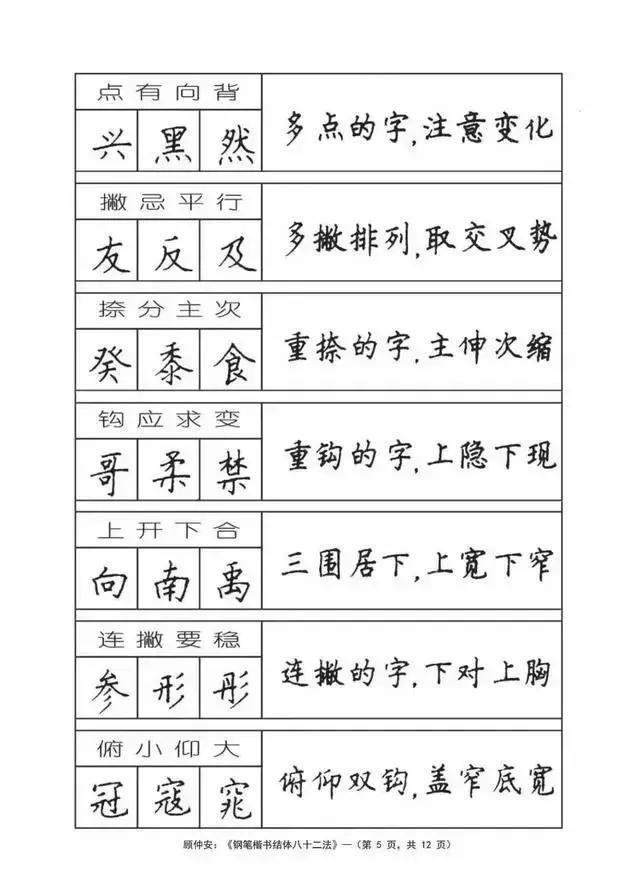 点有向背
兴 黑 然
多点的字,注意变化
撇忌平行
友 反 及
多撇排列,取交叉势
捺分主次
癸 黍 食
重捺的字,主伸次缩
钩应求变
哥 柔 禁
重钩的字,上隐下现
上开下合
向 南 禹
三围居下,上宽下窄
连撇要稳
参 形 彤
连撇的字,下对上胸
俯小仰大
冠 寇 窕
俯仰双钩,盖窄底宽
顾仲安:《钢笔楷书结体八十二法》—(第 5 页, 共 12 页)